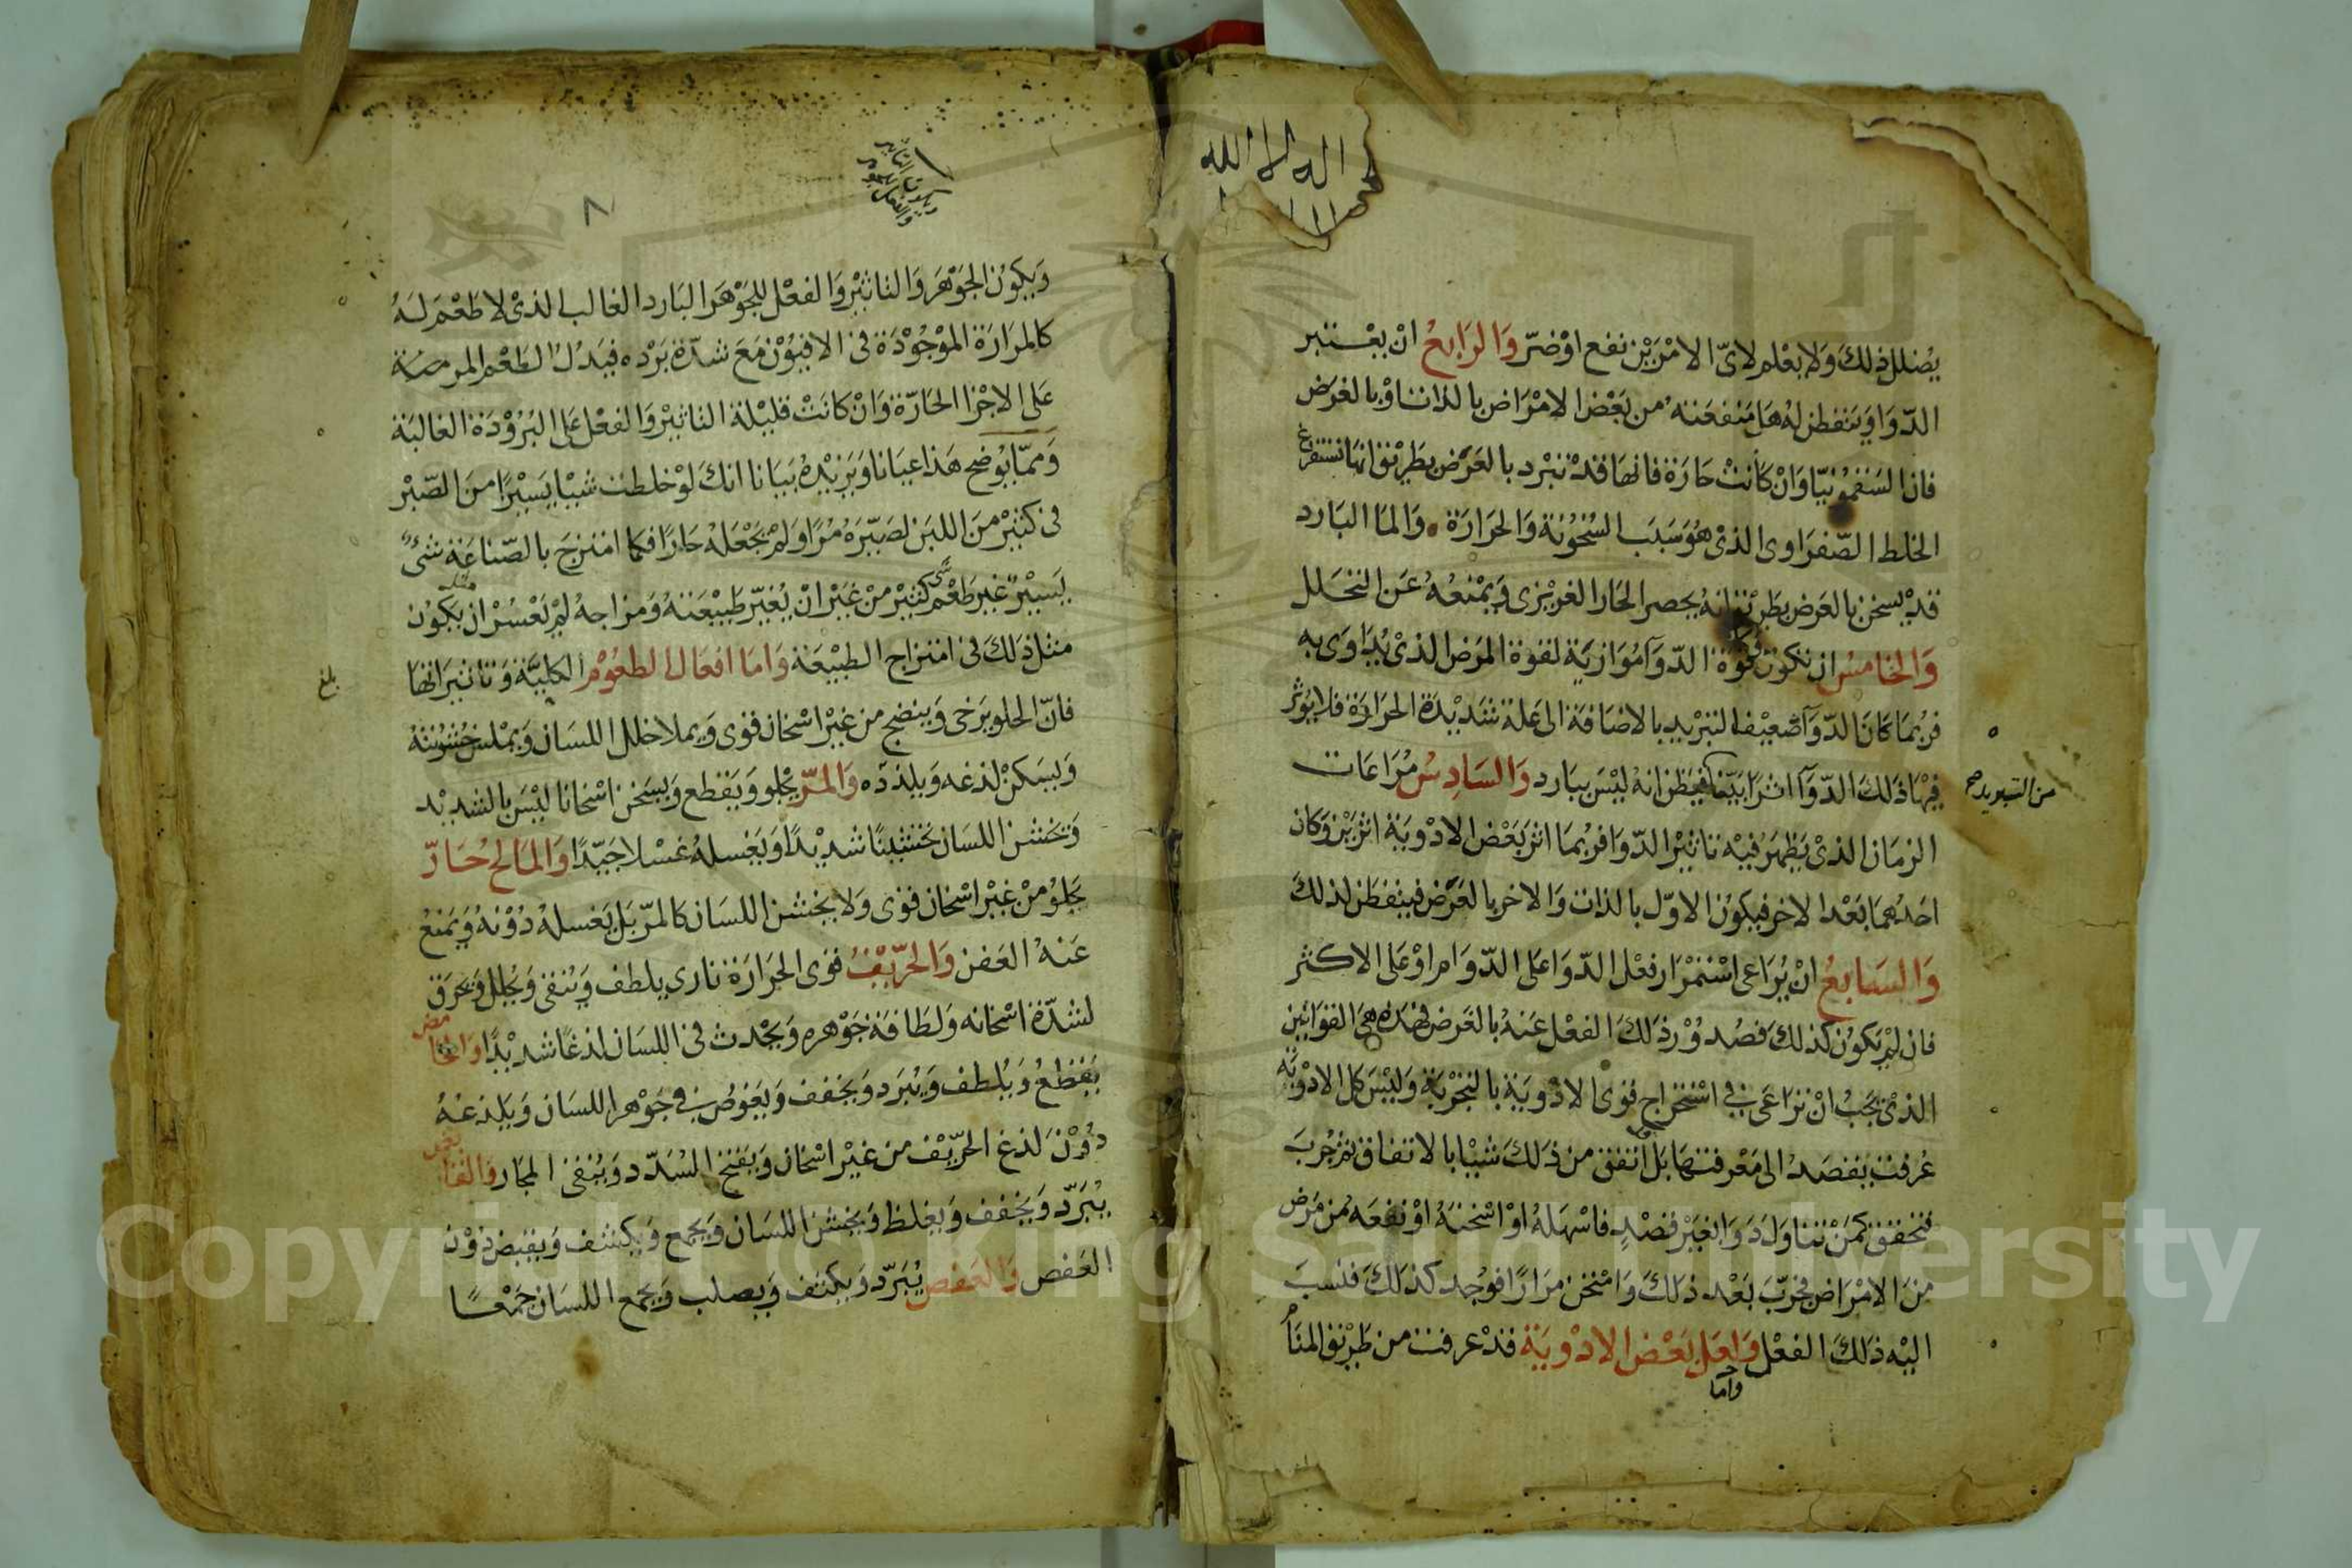 اله الا الله
يُضلل ذلكَ وَلا يعْلم لاىّ الامْرَيْن نفع اوْضرّ وَالرَابعُ انْ يعْتبر
الدّوَا وَيتفطن لهُ هَل مَنفعَته من بَعْض الامْرَاض بالذات اوْ بالعَرض
فان السَقمُونيَا وَانْ كانتْ حَارَة فانهَا قدْ تبْرد بالعَرَض بطَرِيْق انهَا تستفرغ
الخلط الصّفرَاوى الذىْ هُوَ سَبَب السُخُونة وَالحرَارَة . وَالمَا البَارد
قدْ يسخن بالعَرض بطَرِيْق انهُ يحصر الحَار الغرِيْزى وَيمْنعُهُ عَن التحَلل
وَالخامسُ ان تكون قوة الدّوَآ مُوَازيَة لقوة المرَض الذىْ يُدَاوَى به
فرُبمَا كَانَ الدّوَآ ضعيْف التبْريد بالاضَافة الى عَلة شَدِيْدَة الحرَارَة فلا يؤثر
فيْهَا ذلكَ الدّوَآ اثرًا بَيّنًا فيظن انهُ ليْسَ ببَارد وَالسَادِسُ مُرَاعَات
من التبريد صح
الزمَان الذىْ يَظهَرُ فيْه تاثيْر الدّوَا فرُبمَا اثر بَعْض الادْويَة اثرَيْن وَكان
احَدُهمَا بَعْد الاخر فيكوُن الاوّل بالذات وَالاخر بالعَرَض فيتفطن لذلكَ
وَالسَابعُ انْ يُرَاعى اسْتمْرَار فعْل الدّوَا على الدّوَام اوْ عَلى الاكثر
فان لمْ يَكوُن كذلكَ فصُدوُرْ ذلكَ الفعْل عَنهُ بالعَرض فهَذه هىَ القوَانيْن
الذىْ يَجبُ انْ ترَاعَى فى اسْتخرَاج قوى الادْويَة بالتجْرِبَة وَليْسَ كل الادْويَة
عُرفتْ بقصَد الى مَعْرفتهَا بَل اتفق من ذلكَ شيْا بالاتفاق ثم جُرب
فتحقق كمَنْ تنَاوَلَ دوَا بغيْر قصْدٍ فاسْهَلهُ اوْ اسْخنهُ اوْ نفعَه من مَرض
منَ الامْرَاض فجَرّبَ بَعْد ذلكَ وَامْتحن مرَارًا فوُجد كذلكَ فنسبَ
اليْه ذلكَ الفعْل وَلعَل بَعْض الادْويَة قدْ عرفت من طَرِيْق المنَا
وَامَا
٨
وَيكوُن الجَوْهَر وَالتاثيْر وَالفعْل للجَوْهَر البَارد الغالب الذىْ لا طَعْمَ لهُ
كالمرَارَة الموْجُوْدَة فى الافيُوْن مَعَ شدّة بَرْده فيَدُلُ الطَعْم المر منه
عَلى الاجْزا الحَارّة وَانْ كانَتْ قليْلة التاثيْر وَالفعْل عَلى البُرُوْدَة الغالبَة
وَممّا يوُضح هَذا عيَانا وَيَزيْدهُ بَيَانا انكَ لوْ خلطت شيْا يَسيْرًا منَ الصّبْر
فى كثيْر منَ اللبَن لصَيّرَهُ مُرًا وَلمْ يجْعَلهُ حَارًا فكمَا امتزجَ بالصّناعَة شىْ
يَسيْر غير طَعْم شى كثيْر منْ غيْر انْ يُغيّر طَبيْعَتهُ وَمزاجهُ لمْ يَعْسُرْ ان يَكوُن
مثل ذلكَ فى امتزاج الطبيْعَة وَامَا افعَال الطعُوْم الكليّة وَتاثيرَاتهَا
بلغ
فانّ الحلو يَرخى وَينضج من غيْر اسْخان قوى وَيملا خلل اللسَان وَيملس خشُوْنتهُ
وَيسَكنْ لذعه وَيلذذه وَالمرّ يجْلو وَيَقطع وَيسَخن اسْخانا ليْسَ بالشديْد
وَتخشن اللسَان تخشيْنًا شديْدًا وَيَغسلهُ غسْلا جَيّدًا وَالمَالح حُارّ
يَجْلوُ منْ غيْر اسْخان قوى وَلا يخشن اللسَان كالمرّ بَل يَغسلهُ دُوْنهُ وَيَمنعُ
عَنهُ العَفن وَالحرّيْفُ قوى الحرَارَة نارى يلطف وَيُنقى وَيُحلل وَيحرَق
لشدّة اسْخانه وَلطَافة جَوْهره وَيحْدث فى اللسَان لذعًا شديْدًا وَالحامض
يَقطعُ وَيُلطف وَيُبَرد وَيخفف وَيَغوُص فى جَوْهر اللسَان وَيَلذعهُ
دُوْنَ لذع الحرّيْف من غيْر اسْخان وَيَفتح السُدَد وَيُنقى المجَار وَالقابض
يُبَرّد وَيَجْفف وَيغلظ وَيخشن اللسَان وَيَجْمع وَيكشف وَيقبض دُوْن
العَفص وَالعَفص يُبَرّد وَيكثف وَيصلب وَيَجْمع اللسَان جَمْعًا
Copyright © King Saud University